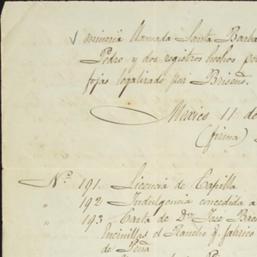 mineria llamada Santa Barba
Pedro y dos registros hechos po
fojas legalizado por Briseño.
Marzes 11 de
(firma)
Nº 191 Licencia de Capilla
" 192 Indulgencia concedida a
" 193 Carta de Dn. Jose
Encinillas el Rancho q. fabrico
de Peña